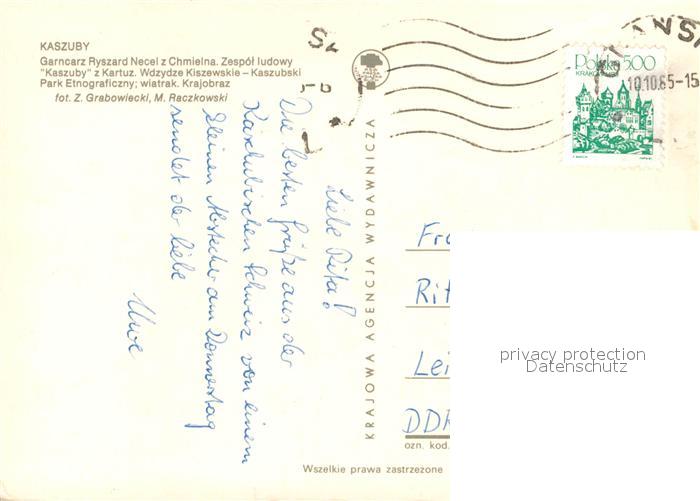 KASZUBY
Garncarz Ryszard Necel z Chmielna. Zespół ludowy
"Kaszuby" z Kartuz. Wdzydze Kiszewskie – Kaszubski
Park Etnograficzny; wiatrak. Krajobraz
fot. Z. Grabowiecki, M. Raczkowski
Liebe Rita!
Die besten Grüße aus der
Kaschubischen Schweiz von einem
kleinen Abstecher am Donnerstag
sendet der liebe
Uwe
KRAJOWA AGENCJA WYDAWNICZA
Polska 5.00
KRAKÓW
10.10.85-15
Fr
Rit
Lei
DDR
ozn. kod.
Wszelkie prawa zastrzeżone
privacy protection
Datenschutz